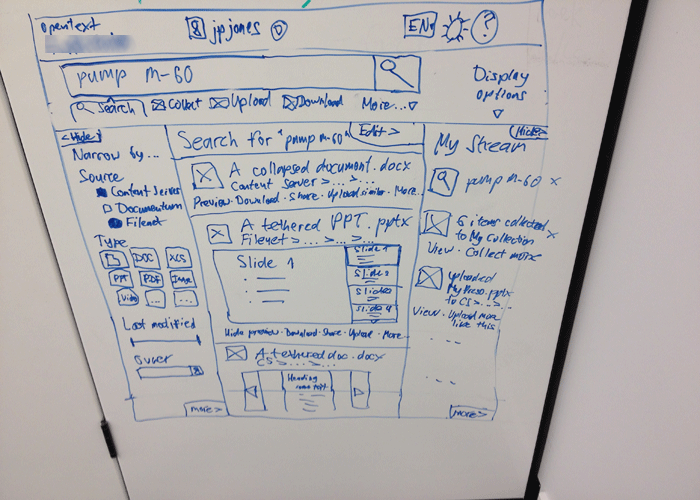 opentext
jpjones
EN ?
pump m-60
Display options
Search Collect Upload Download More...
<Hide
Narrow by...
Source
Content Server
Documentum
Filenet
Type
DOC XLS
PPT PDF Image
Video ... ...
Last modified
Owner
more>
Search for "pump m-60" Edit >
A collapsed document.docx
Content Server >...>...>
Preview · Download · Share · Upload similar · More...
A tethered PPT.pptx
Filenet >...>...>...>
Slide 1
Slide 1
Slide 2
Slide 4
Hide preview · Download · Share · Upload · More..
A tethered doc.docx
CS >...>...>
Heading
some text
Hide>
My Stream
pump m-60 x
6 items collected
to My Collection x
View · Collect more
Uploaded
to CS >...>...
View · Upload more
like this
...
...
more>